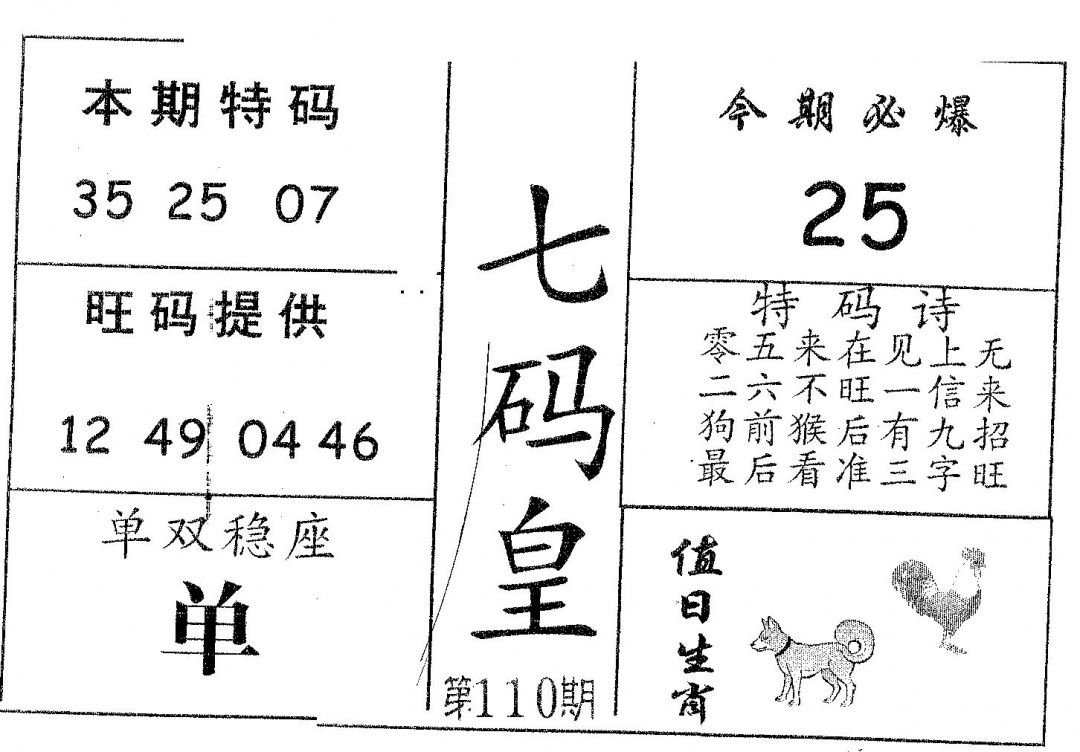 本期特码
35 25 07
旺码提供
12 49 04 46
单双稳座
单
七码皇
第110期
今期必爆
25
特码诗
零五来在见上无
二六不旺一信来
狗前猴后有九招
最后看准三字旺
值日生肖